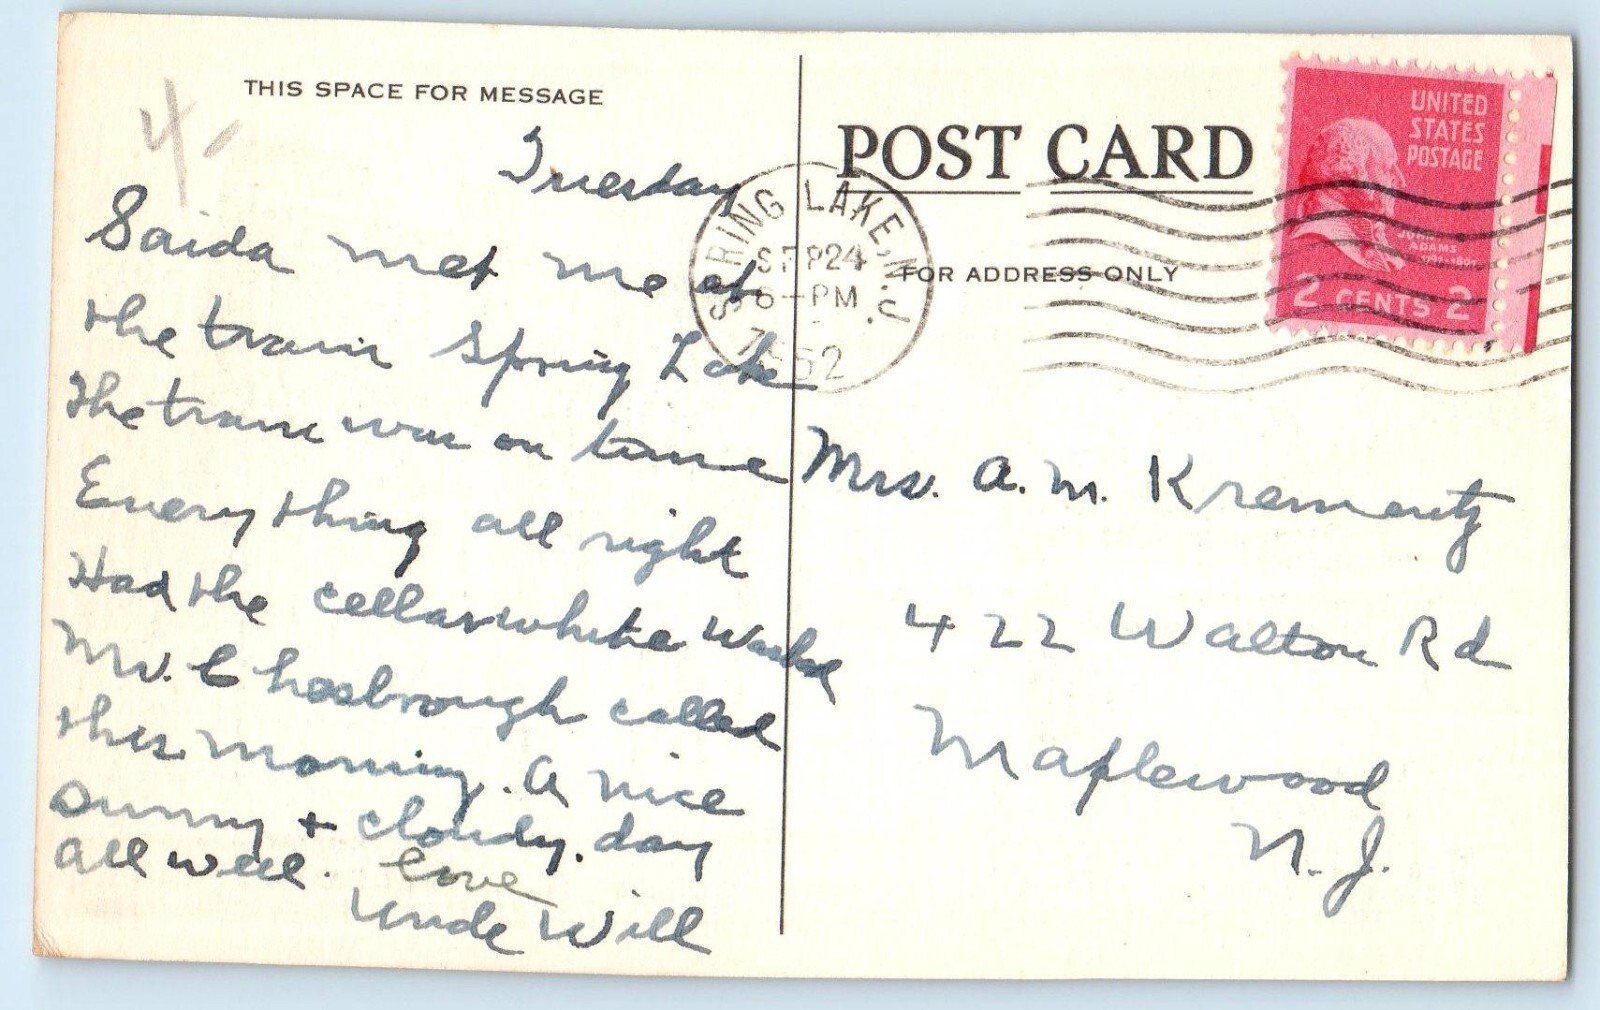 4-
THIS SPACE FOR MESSAGE
Tuesday
Saida met me at
the train Spring Lake
The train was on time
Everything all right
Had the cellar white washed
Mr. Chosbrough called
this morning. A nice
sunny + cloudy. day
all well. Love
Uncle Will
POST CARD
FOR ADDRESS ONLY
SPRING LAKE, N.J.
SEP 24
6-PM
1952
UNITED
STATES
POSTAGE
JOHN
ADAMS
1797-1801
2 CENTS 2
Mrs. A. M. Krementz
422 Walton Rd
Maplewood
N. J.